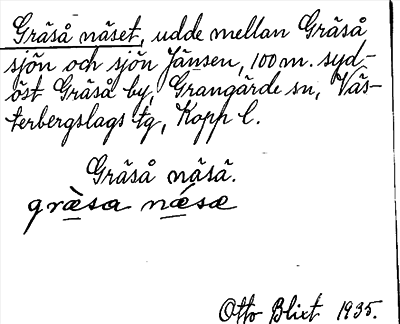 Gräså näset, udde mellan Gräså
sjön och sjön Jänsen, 100 m. syd-
öst Gräså by, Grangärde sn, Väs-
terbergslags tg, Kopp l.
Gräså näsä.
græ̀sa nǽsæ
Otto Blixt 1935.